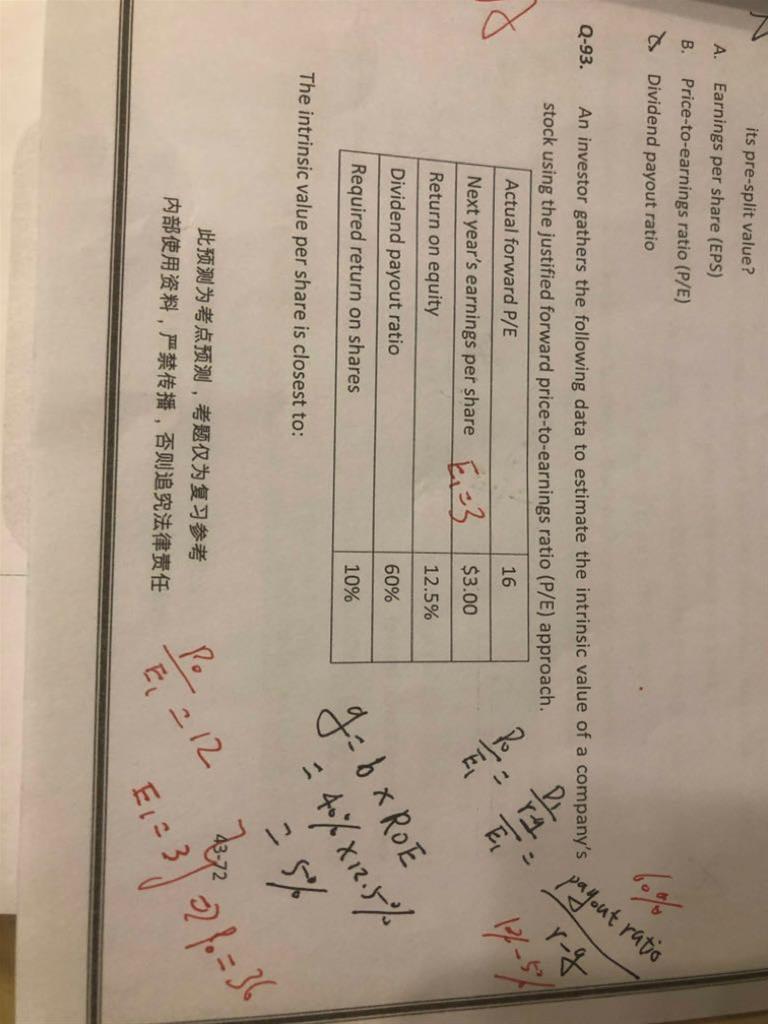 its pre-split value?
A. Earnings per share (EPS)
B. Price-to-earnings ratio (P/E)
Dividend payout ratio
Q-93. An investor gathers the following data to estimate the intrinsic value of a company's
stock using the justified forward price-to-earnings ratio (P/E) approach.
Actual forward P/E 16
Next year's earnings per share E₁=3 $3.00
Return on equity 12.5%
Dividend payout ratio 60%
Required return on shares 10%
The intrinsic value per share is closest to:
P₀/E₁ = D₁/r-g/E₁ = payout ratio/r-g
60%
10%-5%
g = b × ROE
= 40% × 12.5%
= 5%
P₀/E₁ = 12
E₁ = 3
P₀ = 36
此预测为考点预测，考题仅为复习参考
内部使用资料，严禁传播，否则追究法律责任
43-72